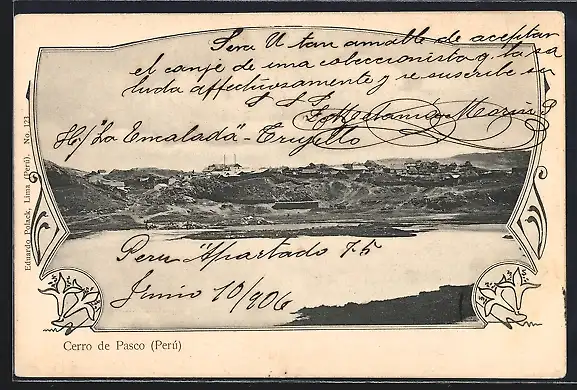 Sera U tan amable de aceptar
el canje de una coleccionista q. la sa
luda affectuosamente y se suscribe su
S S S
Melania Marin
H/ "La Encalada" - Trujillo
Peru "Apartado 75
Junio 10/906
Cerro de Pasco (Perú)
Eduardo Polack, Lima (Perú), No. 121